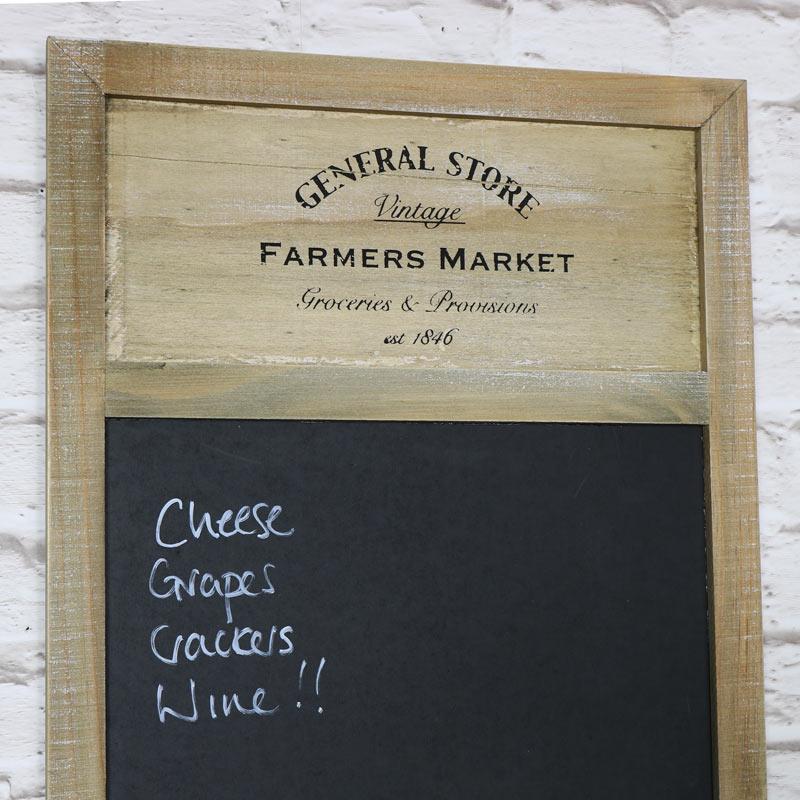 GENERAL STORE
Vintage
FARMERS MARKET
Groceries & Provisions
est 1846
Cheese
Grapes
Crackers
Wine!!